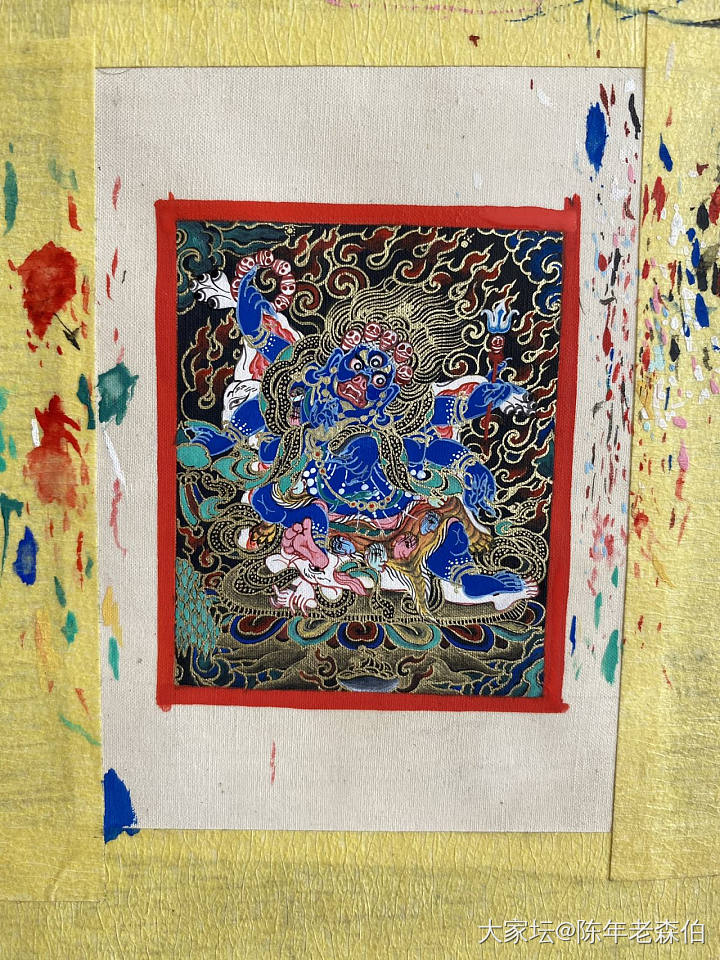 大家坛@陈年老森伯